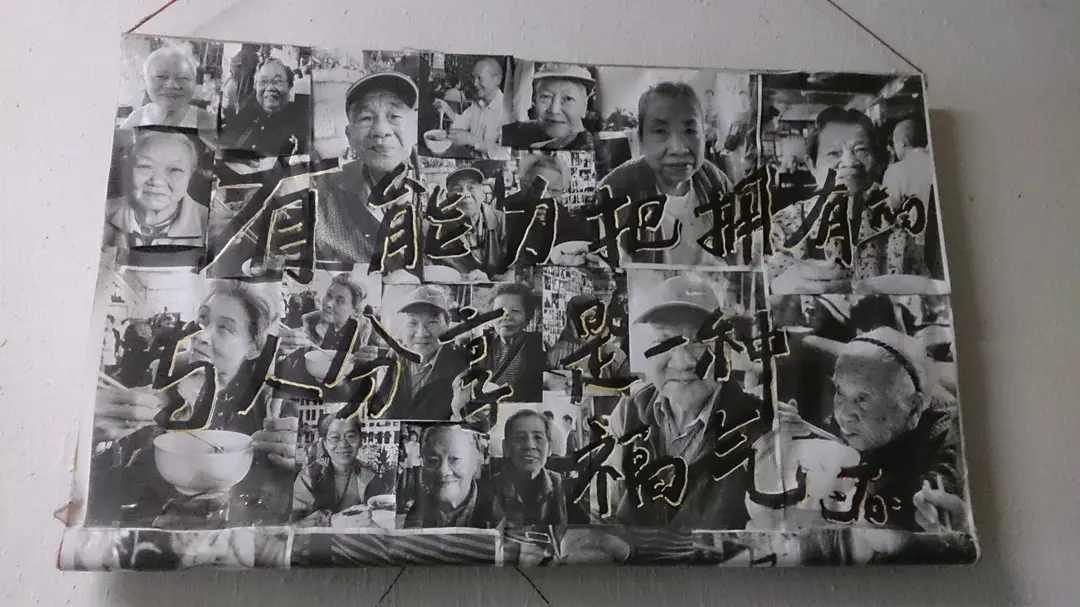 有能力把拥有的
与人分享是一种
福气